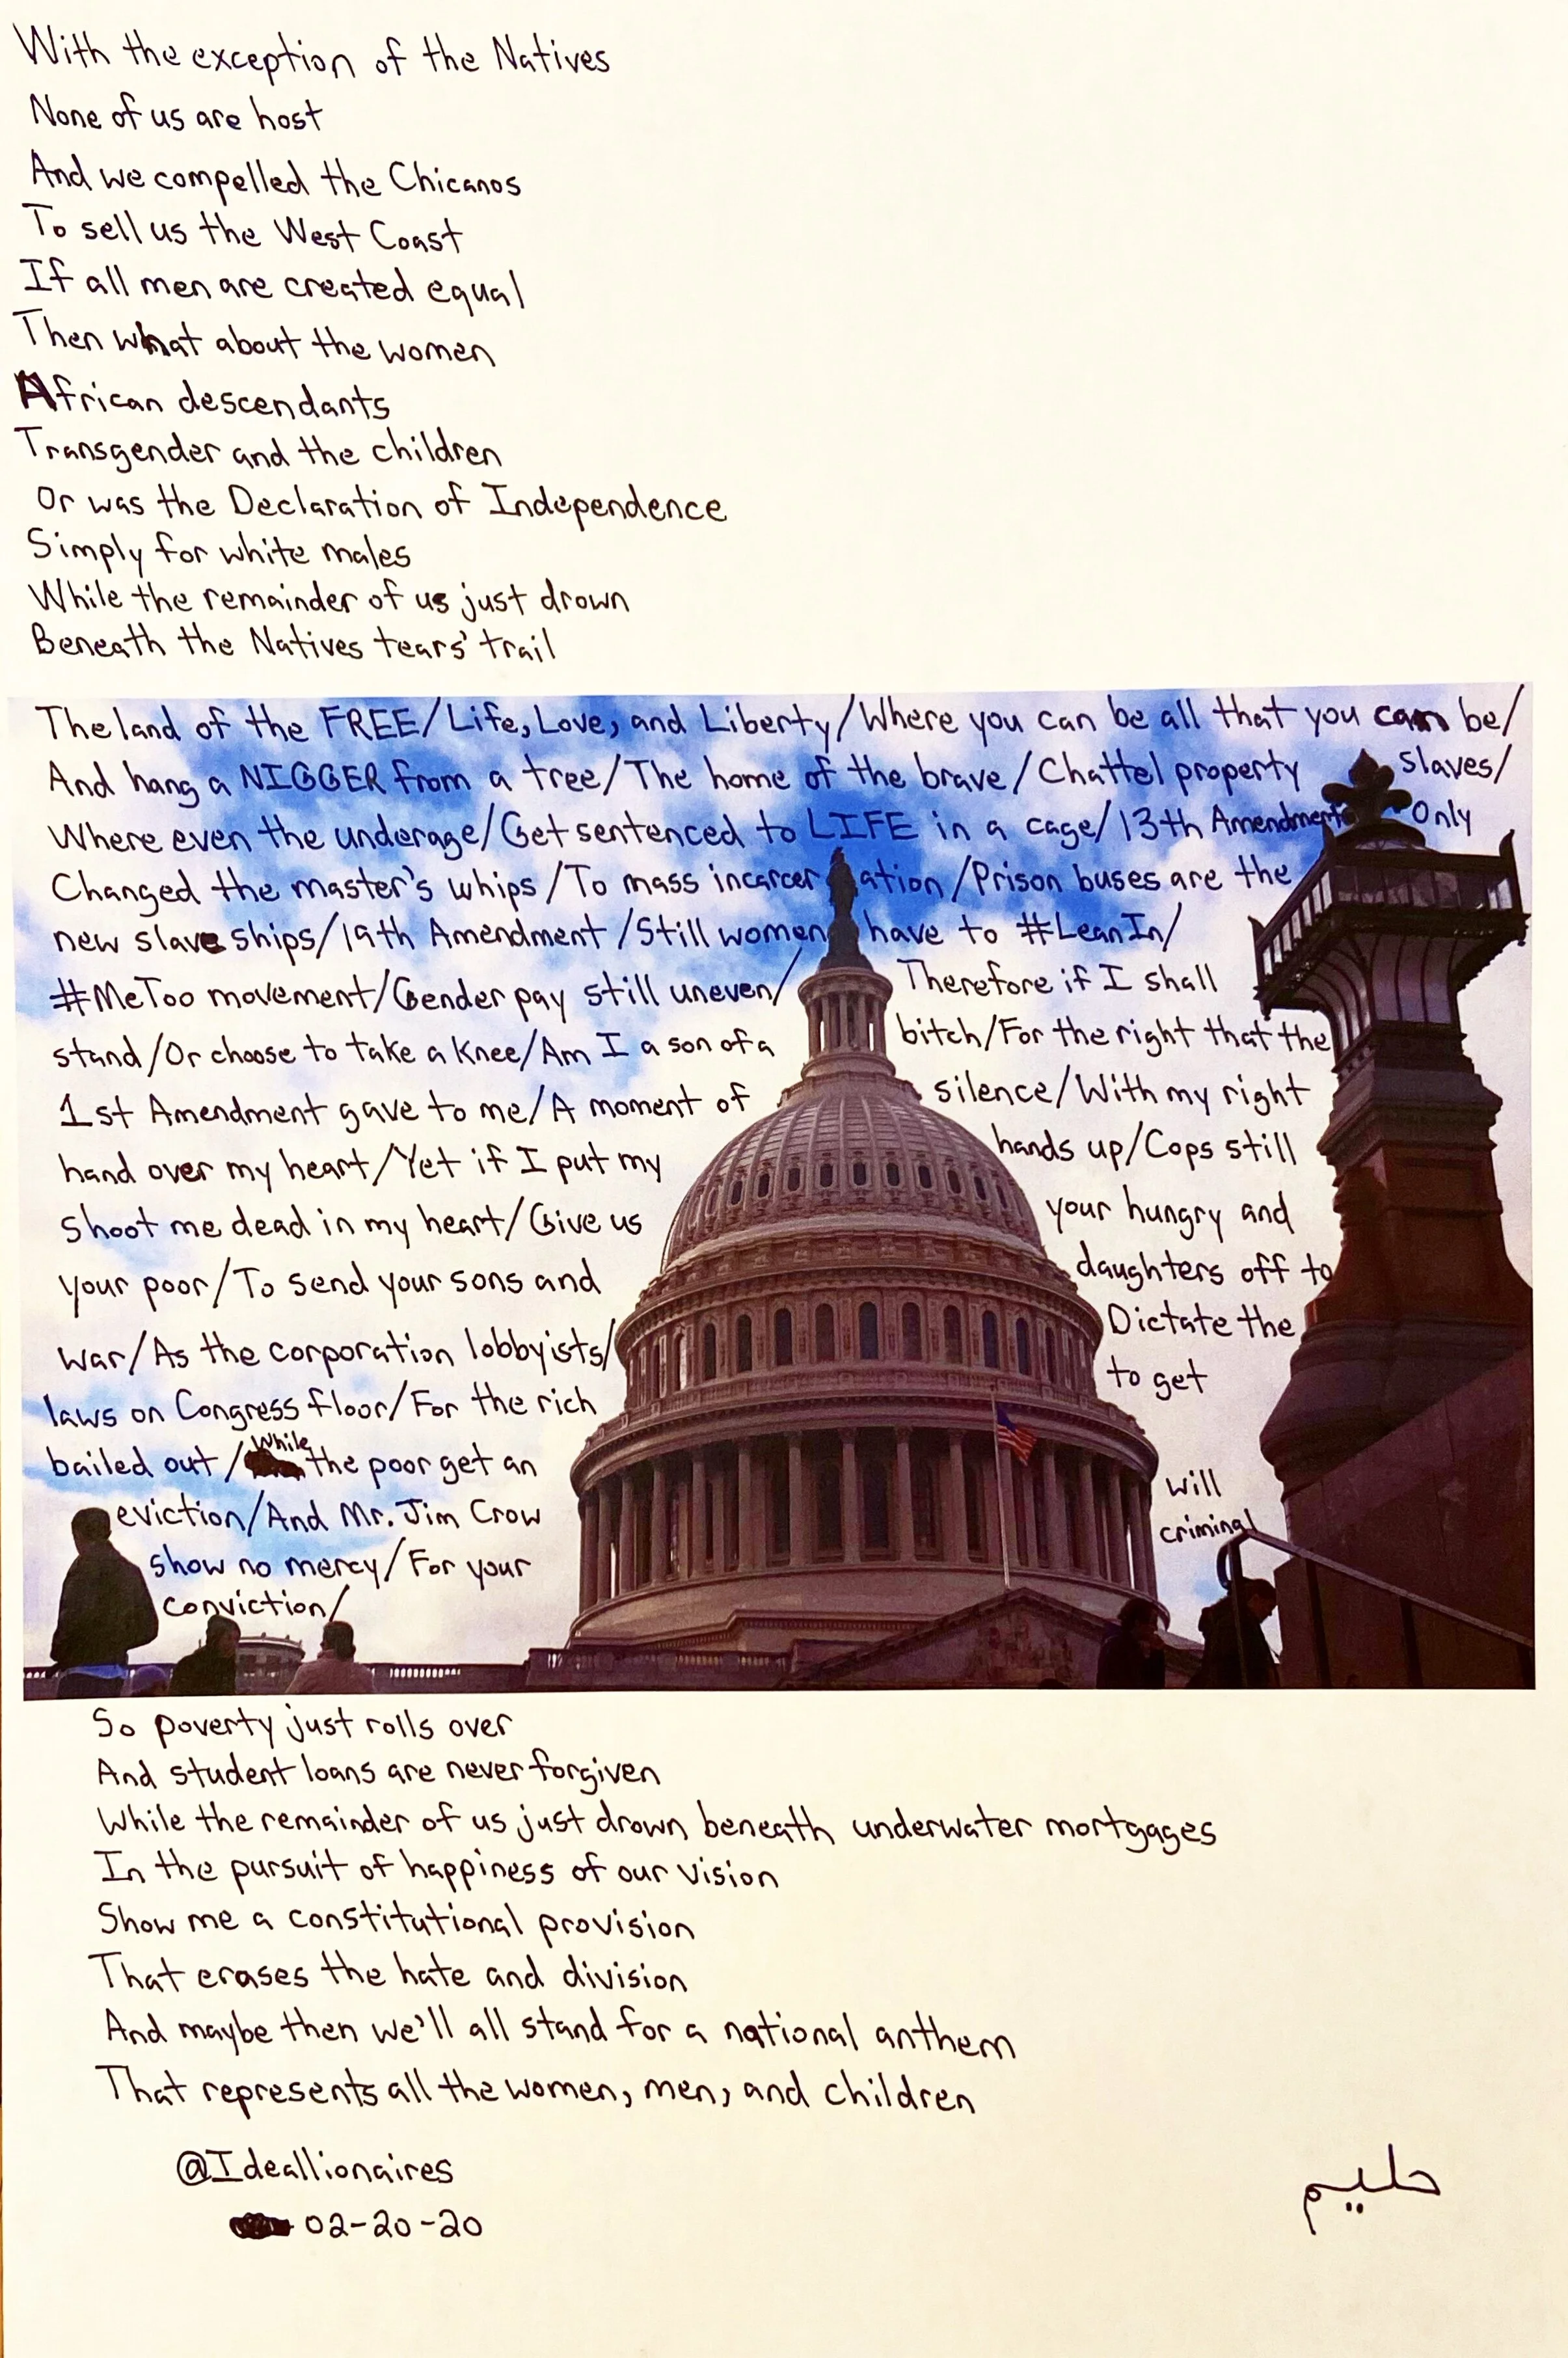 With the exception of the Natives
None of us are host
And we compelled the Chicanos
To sell us the West Coast
If all men are created equal
Then what about the women
African descendants
Transgender and the children
Or was the Declaration of Independence
Simply for white males
While the remainder of us just drown
Beneath the Natives tears' trail
The land of the FREE/Life, Love, and Liberty/Where you can be all that you can be/
And hang a NIGGER from a tree/The home of the brave/Chattel property slaves/
Where even the underage/Get sentenced to LIFE in a cage/13th Amendment Only
Changed the master's whips/To mass incarceration/Prison buses are the
new slave ships/19th Amendment/Still women have to #LeanIn/
#MeToo movement/Gender pay still uneven/ Therefore if I shall
stand/Or choose to take a Knee/Am I a son of a bitch/For the right that the
1st Amendment gave to me/A moment of silence/With my right
hand over my heart/Yet if I put my hands up/Cops still
shoot me dead in my heart/Give us your hungry and
your poor/To send your sons and daughters off to
war/As the corporation lobbyists/ Dictate the
laws on Congress floor/For the rich to get
bailed out/While the poor get an
eviction/And Mr. Jim Crow will
show no mercy/For your criminal
conviction/
So poverty just rolls over
And student loans are never forgiven
While the remainder of us just drown beneath underwater mortgages
In the pursuit of happiness of our vision
Show me a constitutional provision
That erases the hate and division
And maybe then we'll all stand for a national anthem
That represents all the women, men, and children
@Ideallionaires
02-20-20
حليم